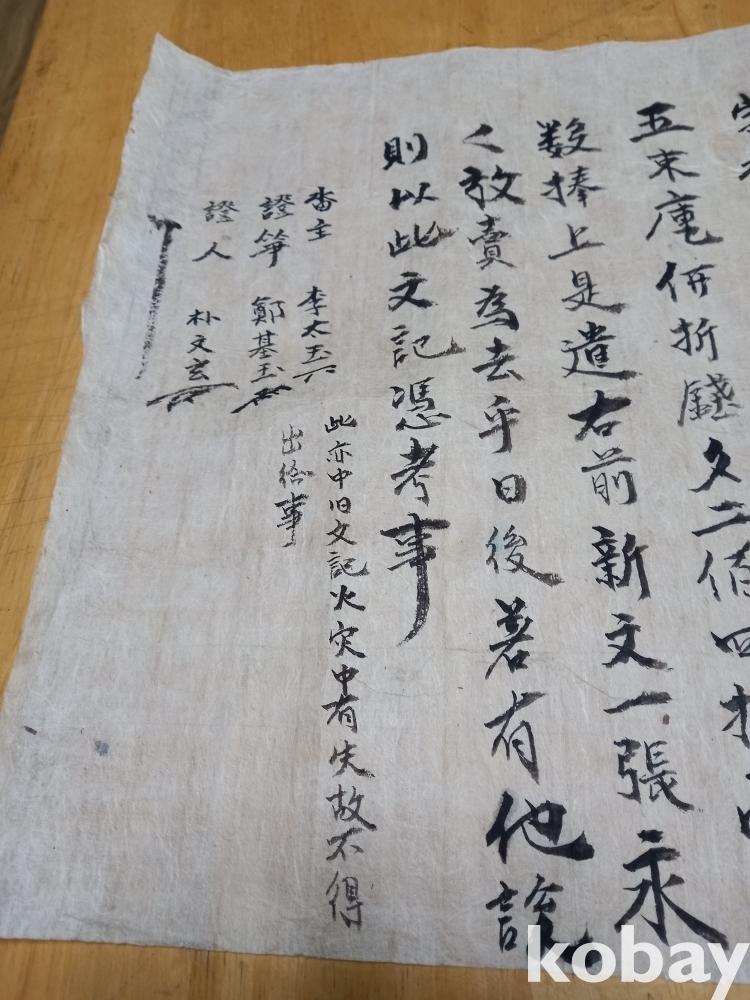 五束庫併折錢文二佰四拾
数捧上是遣右前新文一張永
〻放賣為去乎日後若有他談
則以此文記憑考事
畓主 李太玉
證筆 鄭基玉
證人 朴文玄
此亦中旧文記火灾中有失故不得
出給事
kobay